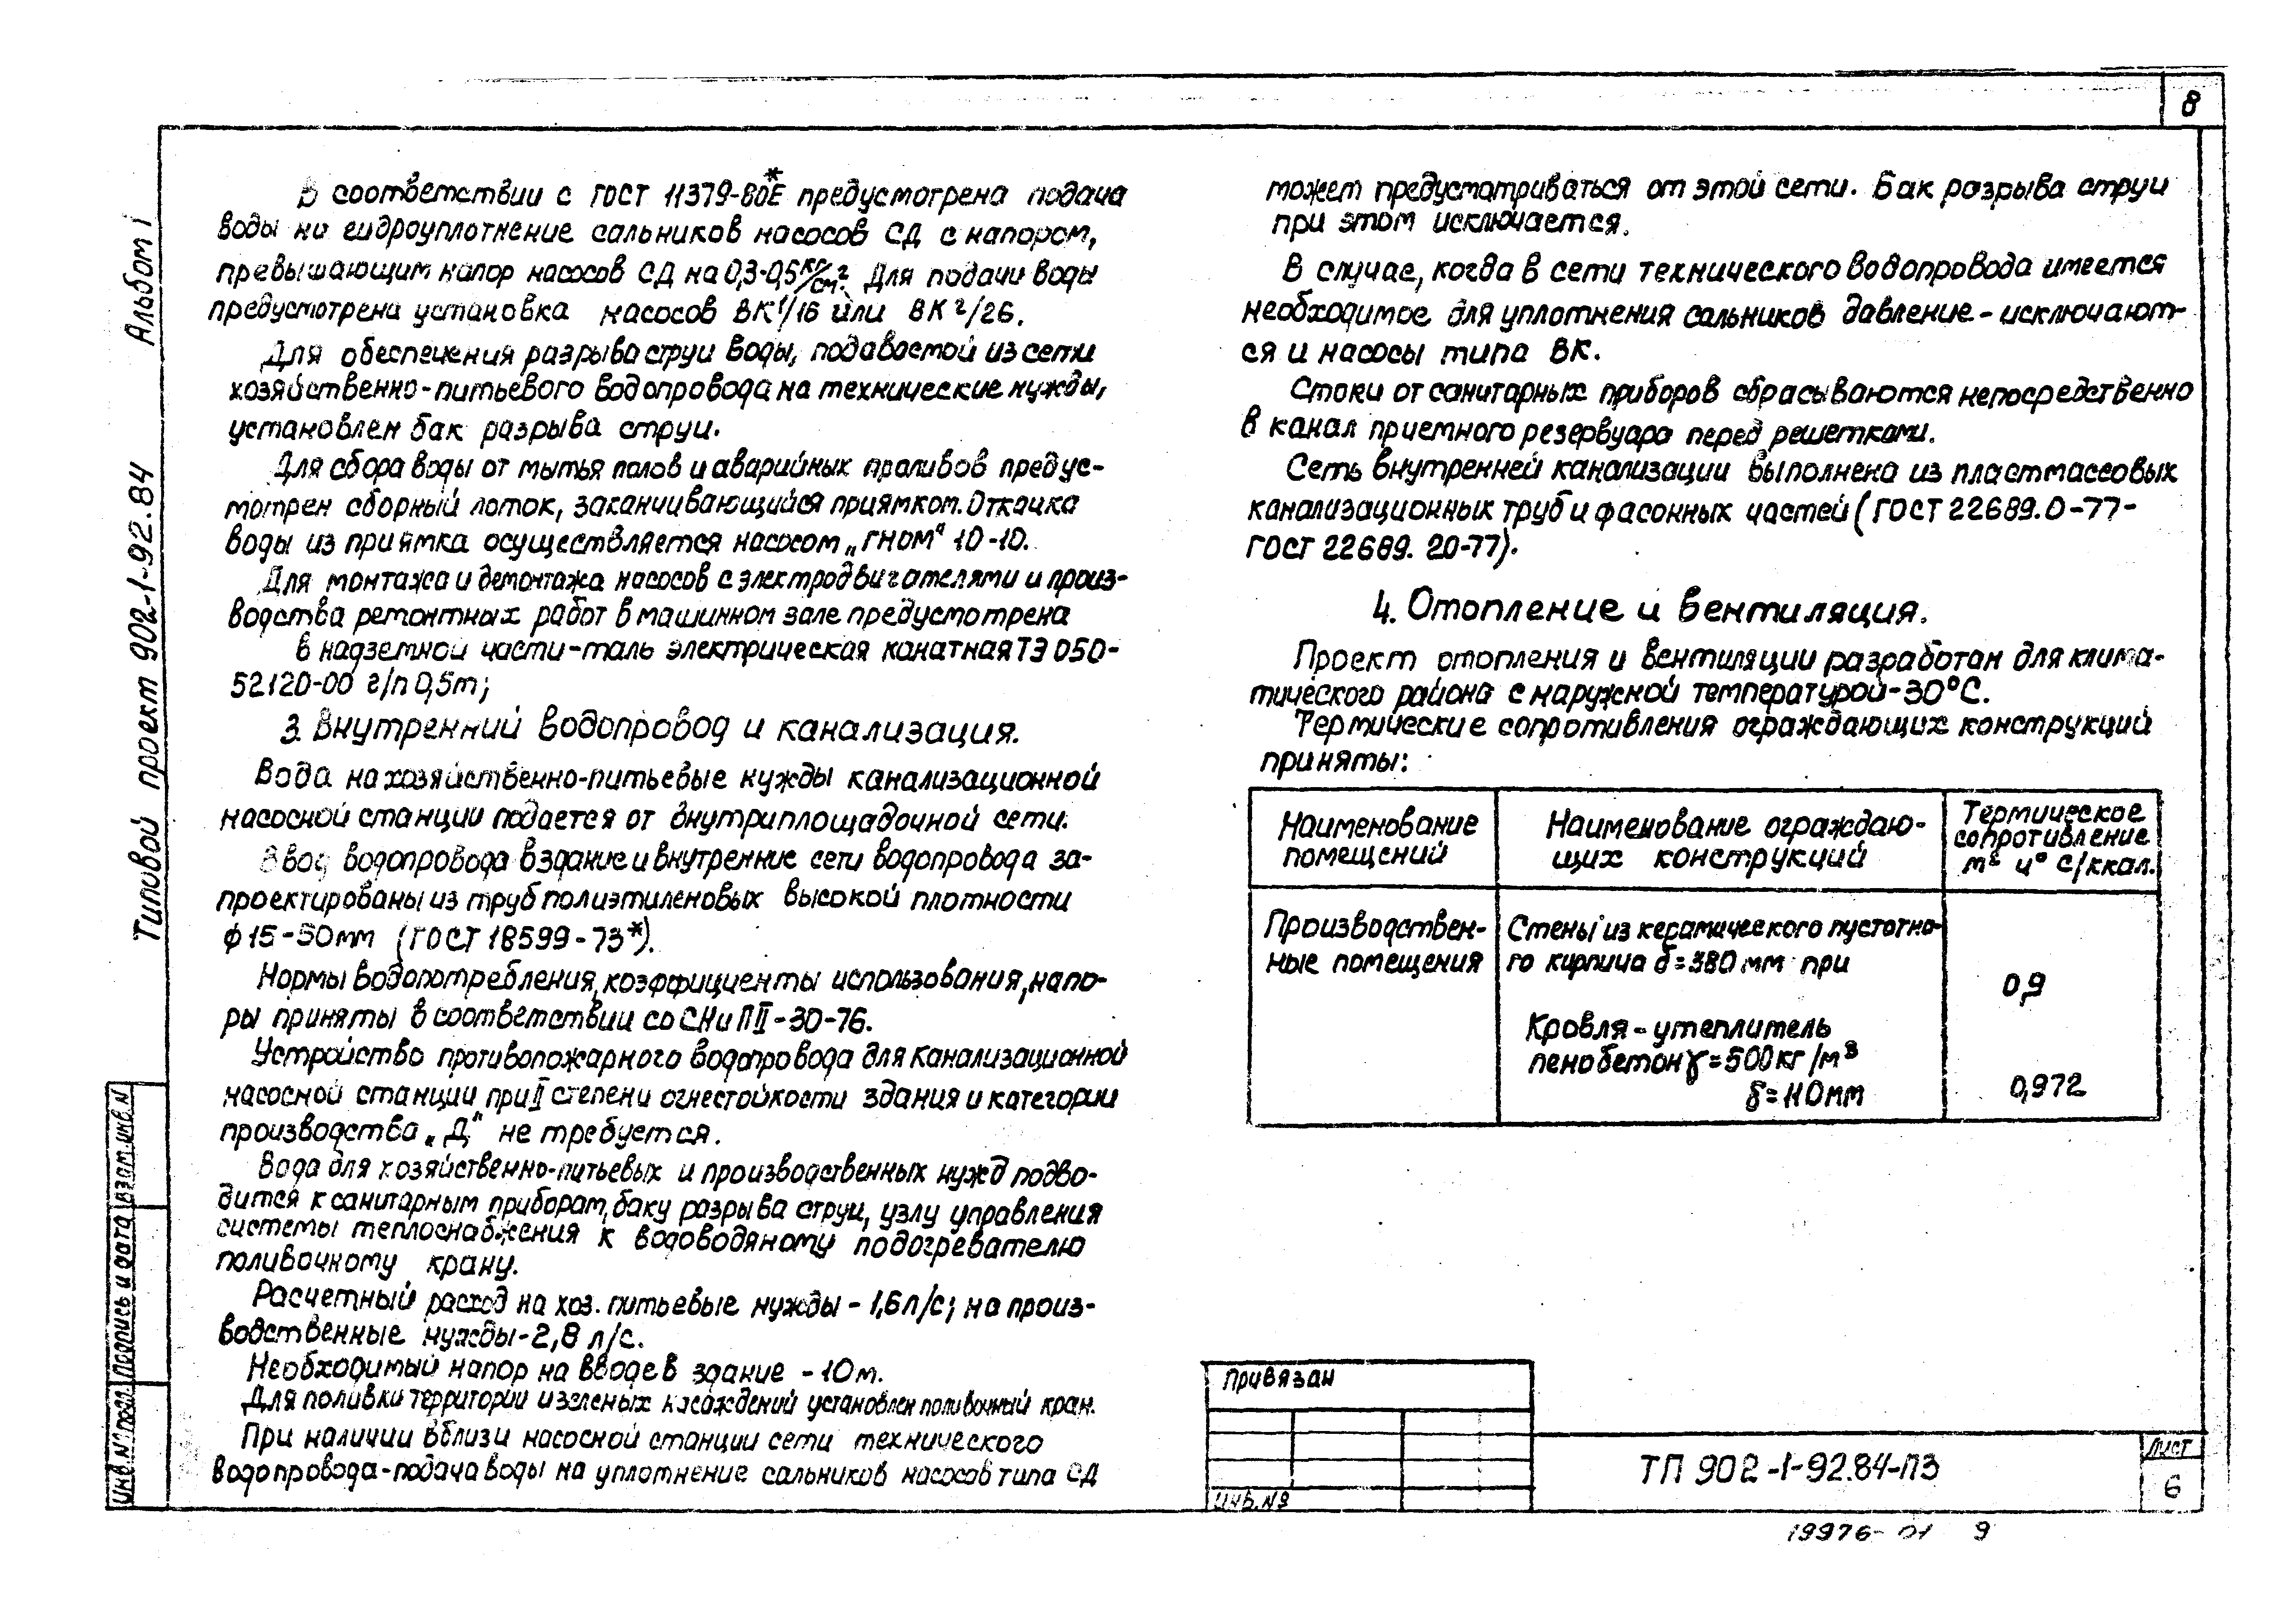 8
Альбом I
Типовой проект 902-1-92.84
В соответствии с ГОСТ 11379-80*Е предусмотрена подача
воды на гидроуплотнение сальников насосов СД с напором,
превышающим напор насосов СД на 0,3-0,5 кг/см². Для подачи воды
предусмотрена установка насосов ВК 1/16 или ВК 2/26.
Для обеспечения разрыва струи воды, подаваемой из сети
хозяйственно-питьевого водопровода на технические нужды,
установлен бак разрыва струи.
Для сбора воды от мытья полов и аварийных проливов предус-
мотрен сборный лоток, заканчивающийся приямком. Откачка
воды из приямка осуществляется насосом „ГНОМ" 10-10.
Для монтажа и демонтажа насосов с электродвигателями и произ-
водства ремонтных работ в машинном зале предусмотрена
в надземной части-таль электрическая канатная ТЭ 050-
52120-00 г/п 0,5т;
3. Внутренний водопровод и канализация.
Вода на хозяйственно-питьевые нужды канализационной
насосной станции подается от внутриплощадочной сети.
Ввод водопровода в здание и внутренние сети водопровода за-
проектированы из труб полиэтиленовых высокой плотности
ф 15-50мм (ГОСТ 18599-73*).
Нормы водопотребления, коэффициенты использования, напо-
ры приняты в соответствии со СНиП II-30-76.
Устройство противопожарного водопровода для канализационной
насосной станции при II степени огнестойкости здания и категории
производства „Д" не требуется.
Вода для хозяйственно-питьевых и производственных нужд подво-
дится к санитарным приборам, баку разрыва струи, узлу управления
системы теплоснабжения к водоводяному подогревателю
поливочному крану.
Расчетный расход на хоз. питьевые нужды - 1,6 л/с; на произ-
водственные нужды-2,8 л/с.
Необходимый напор на вводе в здание - 10м.
Для поливки территории и зеленых насаждений установлен поливочный кран.
При наличии вблизи насосной станции сети технического
водопровода-подача воды на уплотнение сальников насосов типа СД
может предусматриваться от этой сети. Бак разрыва струи
при этом исключается.
В случае, когда в сети технического водопровода имеется
необходимое для уплотнения сальников давление - исключают-
ся и насосы типа ВК.
Стоки от санитарных приборов сбрасываются непосредственно
в канал приемного резервуара перед решетками.
Сеть внутренней канализации выполнена из пластмассовых
канализационных труб и фасонных частей (ГОСТ 22689.0-77-
ГОСТ 22689. 20-77).
4. Отопление и вентиляция.
Проект отопления и вентиляции разработан для клима-
тического района с наружной температурой-30°С.
Термические сопротивления ограждающих конструкций
приняты:
Наименование
помещений
Наименование ограждаю-
щих конструкций
Термическое
сопротивление
м² ч° С/ккал.
Производствен-
ные помещения
Стены из керамического пустотно-
го кирпича δ=380мм при
0,9
Кровля - утеплитель
пенобетон γ=500кг/м³
δ=110мм
0,972
Привязан
Инв.№
ТП 902-1-92.84-ПЗ
Лист
6
Инв.№ подл. Подпись и дата Взам.инв.№
19976-01 9